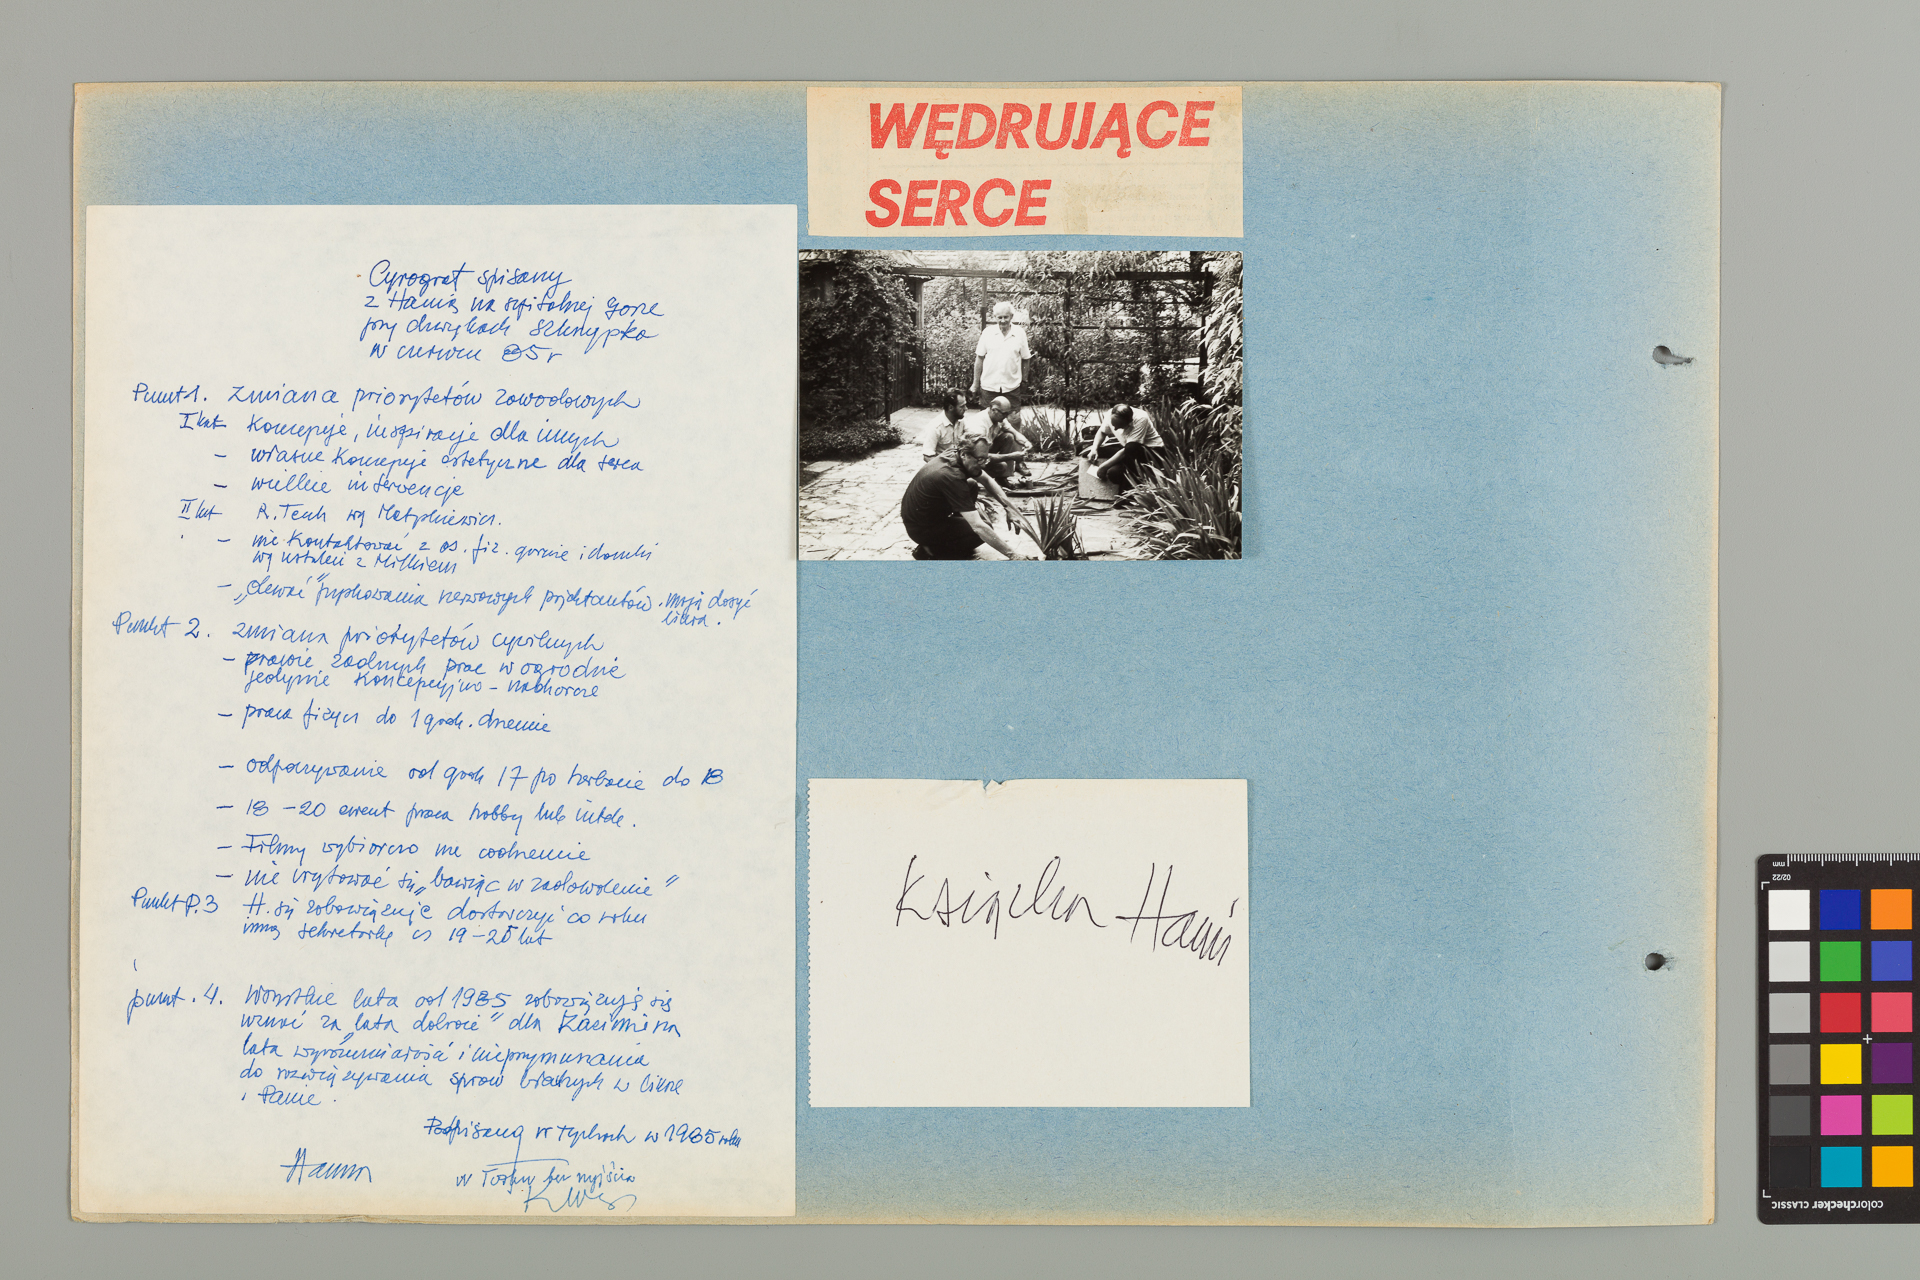 WĘDRUJĄCE
SERCE
Cyrograf spisany
z Hanią na szpitalnej górze
przy dźwiękach skrzypka
w czerwcu 85 r
Punkt 1. Zmiana priorytetów zawodowych
I kat Koncepcje, inspiracje dla innych
- własne koncepcje estetyczne dla serca
- wielkie interwencje
II kat R. Tech wg
- nie kontaktować z os. fiz. gornie i domki
wg ustaleń z Milkiem
- „olewać” nerwowych projektantów. mają dosyć
Punkt 2. zmiana priorytetów cywilnych
- prawie żadnych prac w ogrodzie
jedynie koncepcyjno - nadzorcze
- praca fizycz do 1 godz. dziennie
- odpoczywanie od godz 17 po herbacie do 18
- 18 - 20 ewent praca hobby lub intel.
- Filmy wybiorczo nie codziennie
- nie irytować się „bawiąc w zadowolenie”
Punkt P.3 H. się zobowiązuje dostarczyć co roku
inną sekretarkę cs 19-25 lat
punkt. 4. Wszystkie lata od 1985 zobowiązuję się
uznać za „lata dobroci” dla Kazimierza
lata wyrozumiałości i nieprzymuszania
do rozwiązywania spraw błahych w
i Panie.
Podpisany w Tychach w 1985 roku
Hanna
w bez wyjścia
Książka Hani
mm
02/22
colorchecker CLASSIC